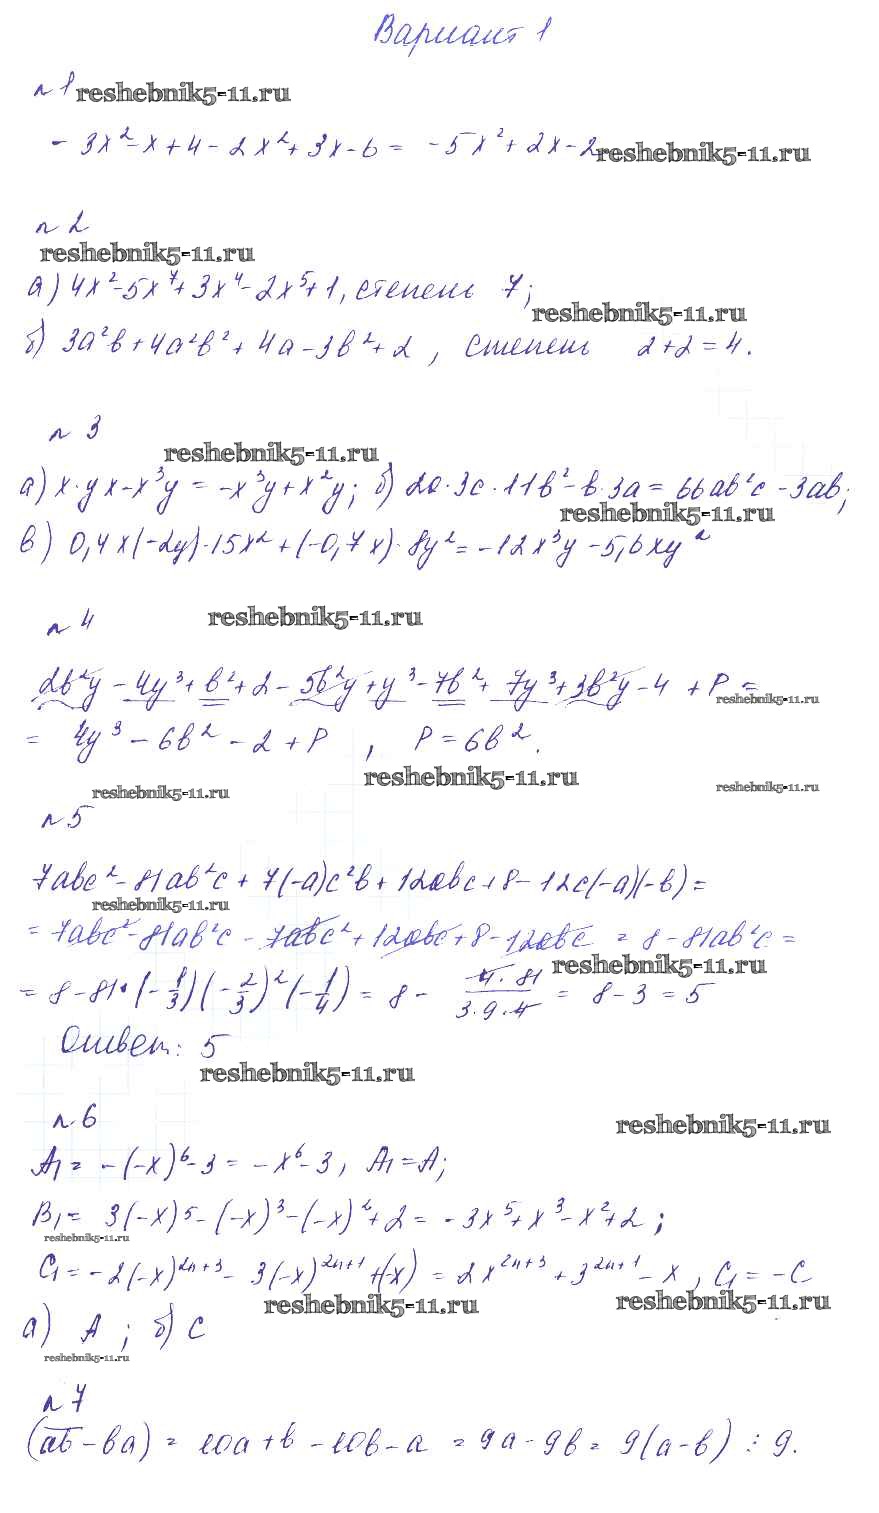 Вариант 1
№1 reshebnik5-11.ru
-3x²-x+4-2x²+3x-6= -5x²+2x-2 reshebnik5-11.ru
№2
reshebnik5-11.ru
а) 4x²-5x⁷+3x⁴-2x⁵+1, степень 7;
reshebnik5-11.ru
б) 3a²b+4a²b²+4a-3b²+2, степень 2+2=4.
№3
reshebnik5-11.ru
а) x·yx-x³y=-x³y+x²y; б) 2a·3c·11b²-b·3a=66ab²c-3ab;
reshebnik5-11.ru
в) 0,4x(-2y)·15x²+(-0,7x)·8y²=-12x³y-5,6xy²
№4 reshebnik5-11.ru
2b²y-4y³+b²+2-5b²y+y³-7b²+7y³+3b²y-4+P=
reshebnik5-11.ru
= 4y³-6b²-2+P, P=6b².
reshebnik5-11.ru reshebnik5-11.ru reshebnik5-11.ru
№5
7abc²-81ab²c+7(-a)c²b+12abc+8-12c(-a)(-b)=
reshebnik5-11.ru
=7abc²-81ab²c-7abc²+12abc+8-12abc = 8-81ab²c=
reshebnik5-11.ru
=8-81·(-1/3)(-2/3)²(-1/4)=8- 4·81/3·9·4 = 8-3=5
Ответ: 5
reshebnik5-11.ru
№6 reshebnik5-11.ru
A₁= -(-x)⁶-3=-x⁶-3, A₁=A;
B₁= 3(-x)⁵-(-x)³-(-x)²+2=-3x⁵+x³-x²+2;
reshebnik5-11.ru
C₁=-2(-x)²ⁿ⁺³-3(-x)²ⁿ⁺¹+(-x)=2x²ⁿ⁺³+3²ⁿ⁺¹-x, C₁=-C
reshebnik5-11.ru reshebnik5-11.ru
а) A; б) C
reshebnik5-11.ru
№7
(ab-ba)=10a+b-10b-a=9a-9b=9(a-b)⋮9.